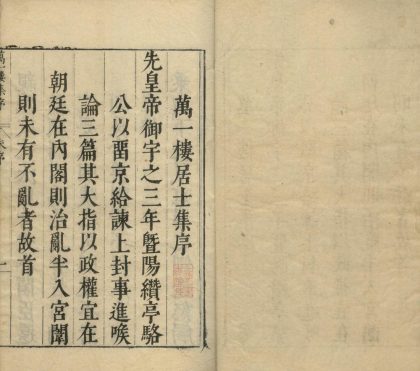 萬一樓居士集序
先皇帝御宇之三年暨陽纘亭駱
公以畱京給諫上封事進唉
論三篇其大指以政權宜在
朝廷在內閣則治亂半入宮闈
則未有不亂者故首
萬一樓集序